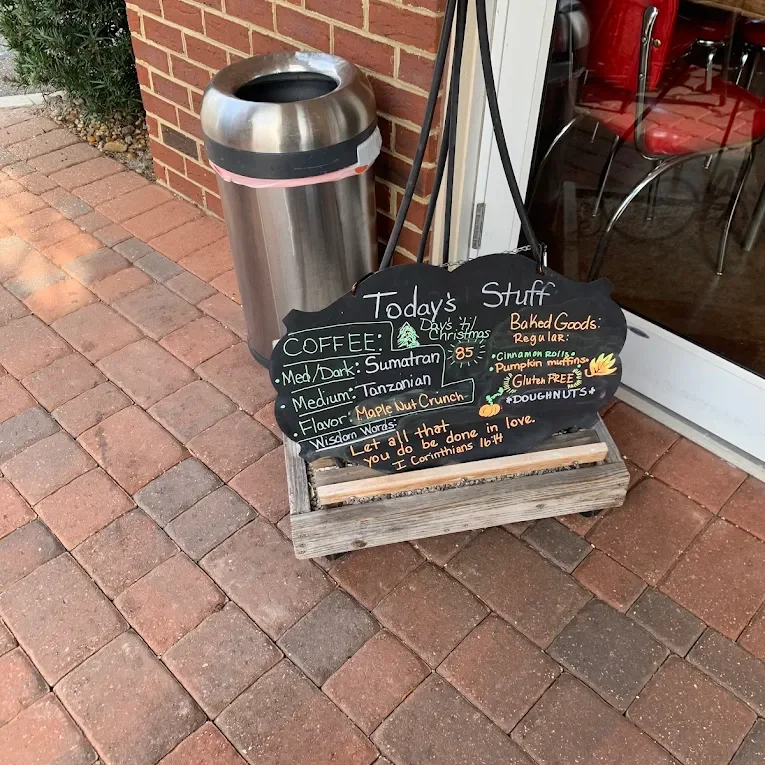 Today's Stuff
COFFEE:
Med/Dark: Sumatran
Medium: Tanzanian
Flavor: Maple Nut Crunch
Days 'til
Christmas
85
Baked Goods:
Regular:
Cinnamon Rolls
Pumpkin muffins
Gluten FREE
*DOUGHNUTS*
Wisdom Words:
Let all that
you do be done in love.
I Corinthians 16:14